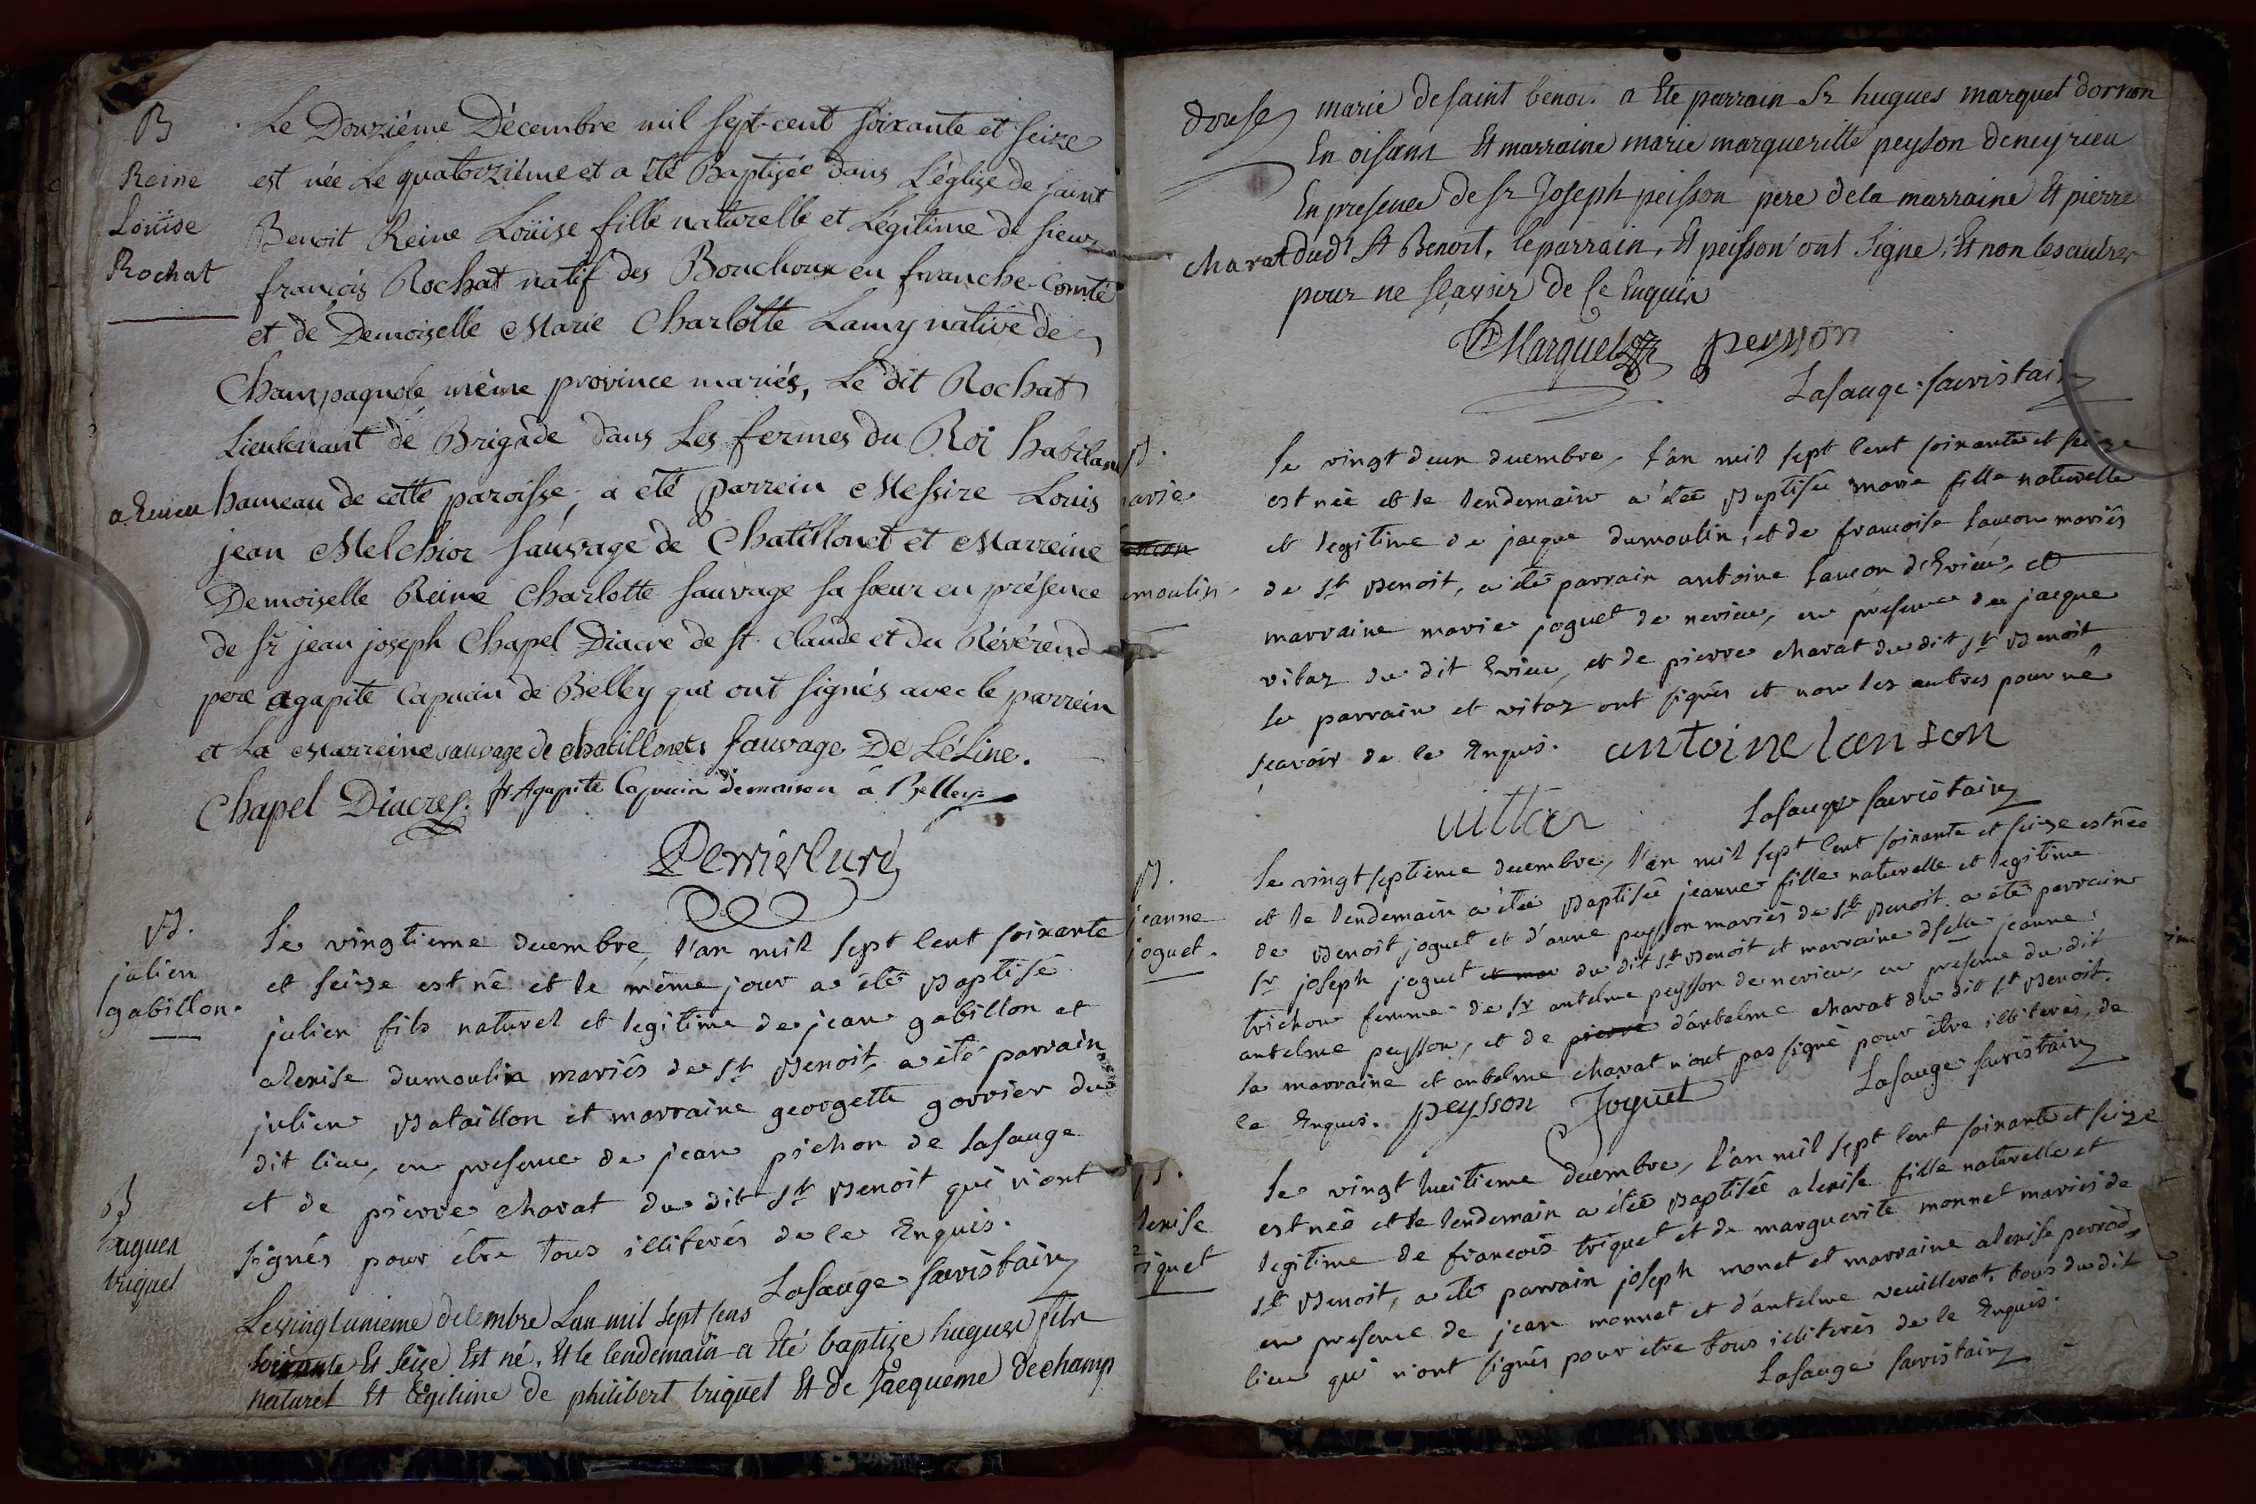 B
Reine
Loüise
Rochat
Le Douziéme Décembre mil Sept-cent soixante et seize
est née Le quatorziéme et a été Baptisée dans L'église de saint
Benoit Reine Loüise fille naturelle et Légitime de sieur
françois Rochat natif des Bouchoux en franche-Comté
et de Demoiselle Marie Charlotte Lamy native de
Champagnole même province mariés, Le dit Rochat
Lieutenant de Brigade dans Les fermes du Roi habitans
hameau de cette paroisse; a été parrein Messire Louis
jean Melchior sauvage de Chatillonet et Marreine
Demoiselle Reine Charlotte sauvage sa sœur en présence
de Sr jean joseph Chapel Diacre de St Claude et du Révérend
pere agapite Capucin de Belley qui ont signés avec le parrein
et La Marreine sauvage de chatillonets sauvage De LéLine.
Chapel Diacre. fr Agapite Capucin demaison à Belley
Perrier Curé
B.
julien
gabillon.
Le vingtieme decembre, l'an mil sept cent soixante
et seize est né et le même jour a été Baptisé
julien fils naturel et legitime de jean gabillon et
alenise dumoulin mariés de St Benoit, a été parrain
julien Bataillon et marraine georgette gorrier du
dit lieu, en presence de jean pichon de Lasauge
et de pierre charat du dit St Benoit qui n'ont
signés pour être tous illiterés de ce Enquis.
Lasauge sacristain
B
hugues
triquet
Le vingt unieme decembre Lan mil Sept sens
soixante Et Seize Est né, Et le lendemain a Eté baptize hugues fils
naturel Et légitime de philibert triquet Et de Jacqueme dechamp
douse marié de saint benoi. a Ete parrain Sr hugues marquet dornon
En oisans Et marraine marie margueritte peyson de neyrieu
En presence de Sr Joseph peisson pere de la marraine Et pierre
charat dudt St Benoit, le parrain, Et peisson ont Signé, Et non les autres
pour ne sçavoir de Ce Enquis
Marquet peysson
Lasauge sacristain
B.
marie
lancon
dumoulin
Le vingt deux decembre, l'an mil sept cent soixante et seize
est née et le lendemain a étée Baptisée marie fille naturelle
et legitime de jacque dumoulin, et de francoise lancon mariés
de St Benoit, a été parrain antoine lancon d'Evieu, et
marraine marie joguet de nerieu, en presence de jacque
vitoz du dit Evieu, et de pierre charat du dit St Benoit
le parrain et vitoz ont signés et non les autres pour ne
scavoir de ce Enquis. antoine lanson
Lasauge sacristain
B.
jeanne
joguet.
Le vingt septieme decembre, l'an mil sept cent soixante et seize est née
et le lendemain a étée Baptisée jeanne fille naturelle et legitime
de Benoit joguet et d'anne peysson mariés de St Benoit. a été parrain
Sr joseph joguet et mar du dit St Benoit et marraine dselle jeanne
trichon femme de Sr antelme peysson de nerieu, en presence du dit
antelme peysson, et de pierre d'antelme charat du dit St Benoit.
la marraine et antelme charat n'ont pas signé pour être illiterés, de
ce Enquis. peysson Joguet
Lasauge sacristain
B.
alenise
triquet
Le vingt huitieme decembre, l'an mil sept cent soixante et seize
est née et le lendemain a étée Baptisée alenise fille naturelle et
legitime de francois triquet et de marguerite monnet mariés de
St Benoit, a été parrain joseph monet et marraine alenise perrod,
en presence de jean monnet et d'antelme veuillerot, tous du dit
lieu qui n'ont signés pour être tous illiterés de ce Enquis.
Lasauge sacristain